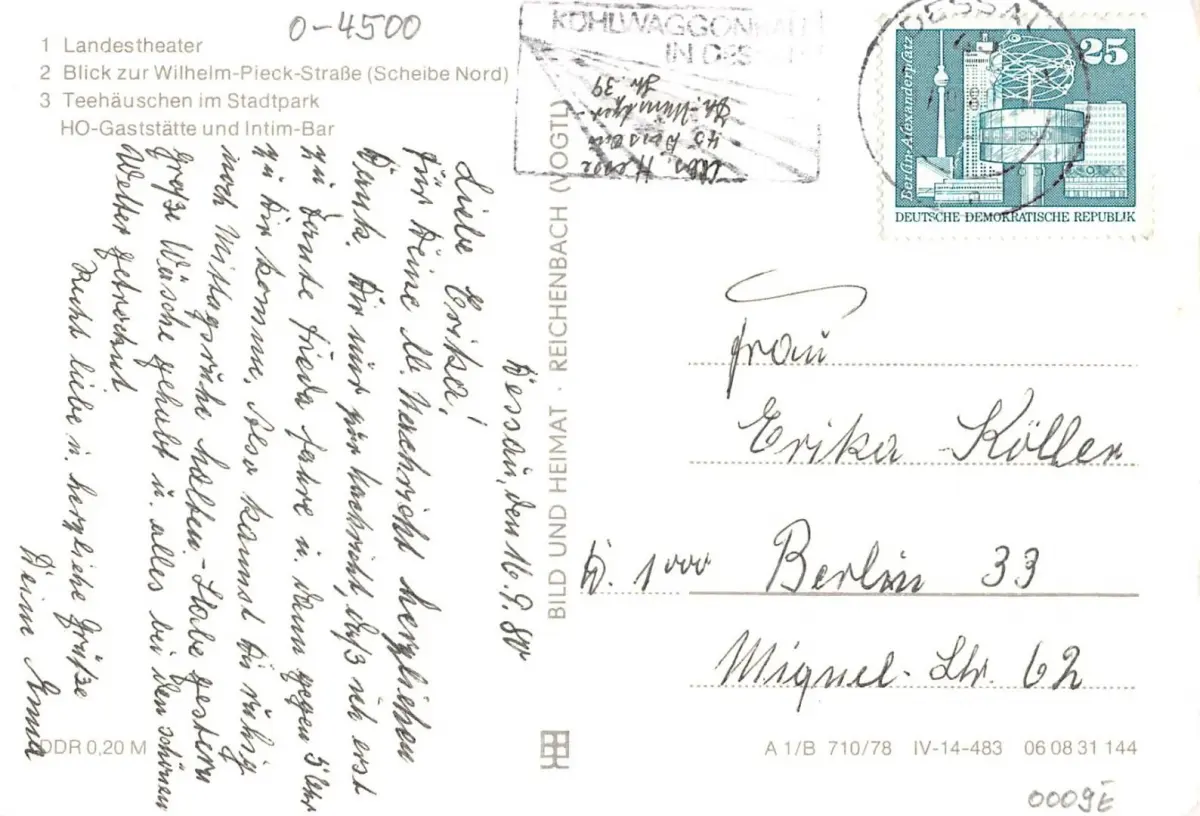 0-4500
1 Landestheater
2 Blick zur Wilhelm-Pieck-Straße (Scheibe Nord)
3 Teehäuschen im Stadtpark
HO-Gaststätte und Intim-Bar
Dessau, den 16.9.80
Liebe Erika!
für Deine lb. Nachricht herzlichen
Dank. Dir nur zur Nachricht, daß ich erst
zu Tante Frieda fahre u. dann gegen 5 Uhr
zu Dir komme. Also kannst Du ruhig
noch Mittagsruhe halten. - Habe gestern
große Wäsche gehabt u. alles bei dem schönen
Wetter getrocknet
Recht liebe u. herzliche Grüße
Deine Anna
DDR 0,20 M
BILD UND HEIMAT · REICHENBACH (VOGTL)
KÜHLWAGGONBAU
IN DESSAU
Abs. Hesse
45 Dessau
Str. 39
DESSAU
Berlin-Alexanderplatz
25
DEUTSCHE DEMOKRATISCHE REPUBLIK
Frau
Erika Köller
W. 1000 Berlin 33
Miquel-Str. 62
A 1/B 710/78 IV-14-483 06 08 31 144
0009E